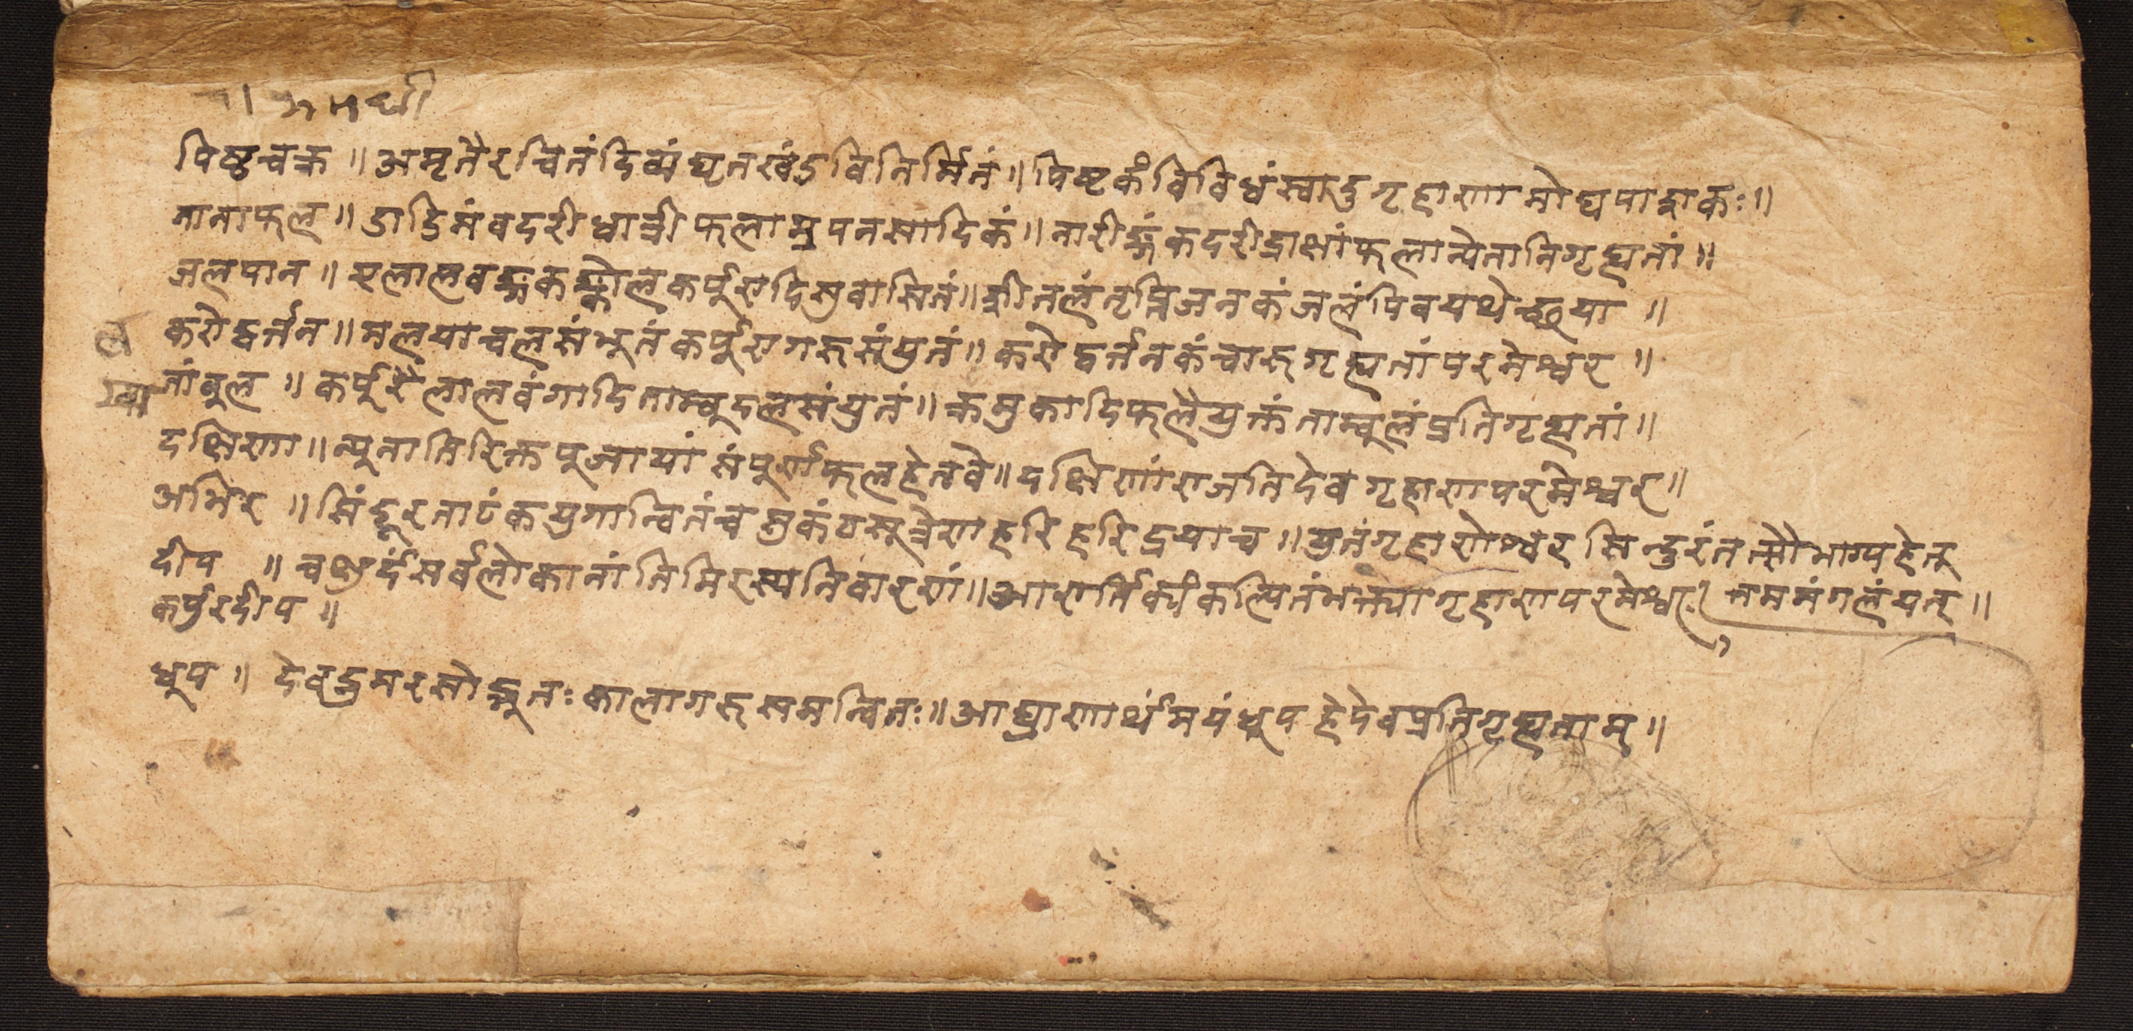 पिष्टचक्र ॥ अमृतैरन्वितंदिव्यंघृतखंडविनिर्मितं ॥ पिष्टकंविविधंस्वादुगृहाणामोघपाद्माकः ॥
नानाफल ॥ डाडिमंवदरीधात्रीफलाम्रपनसादिकं ॥ नारीङ्गंकदरीद्राक्षांफलान्येतानिगृह्यतां ॥
जलपान ॥ एलालवङ्गकङ्कोलकर्पुरादिसुवासितं ॥ शीतलंतृप्तिजनकंजलंपिवयथेच्छया ॥
करोद्वर्त्तन ॥ मलयाचलसंभुतंकर्पुरागरुसंयुतं ॥ करोद्वर्त्तनकंचारुगृह्यतांपरमेश्वर ॥
तांबुल ॥ कर्पुरैलालवंगादिताम्बुदलसंयुतं ॥ क्रमुकादिफलैयुक्तंताम्बुलंप्रतिगृह्यतां ॥
दक्षिणा ॥ न्युनातिरिक्तपुजायांसंपुर्णफलहेतवे ॥ दक्षिणांराजतिदेवगृहाणपरमेश्वर ॥
अभिर ॥ सिंदूरनाटंकयुगान्वितंचसुकंठसुत्रेणहरिहरिद्रयाच ॥ युतंगृहाणेश्वरसिन्दुरंतत्सौभाग्यहेतु
दीप ॥ चक्षुर्दंसर्वलोकानांतिमिरस्यनिवारणं ॥ आरार्तिक्यंकल्पितंभक्त्यागृहाणपरमेश्वर ॥ नममंगलंयत् ॥
कर्पुरदीप ॥
धूप ॥ देवद्रुमरसोद्भुतःकालागरुसमन्वितः ॥ आघ्राणार्थमयंधूपहेदेवप्रतिगृह्यताम् ॥